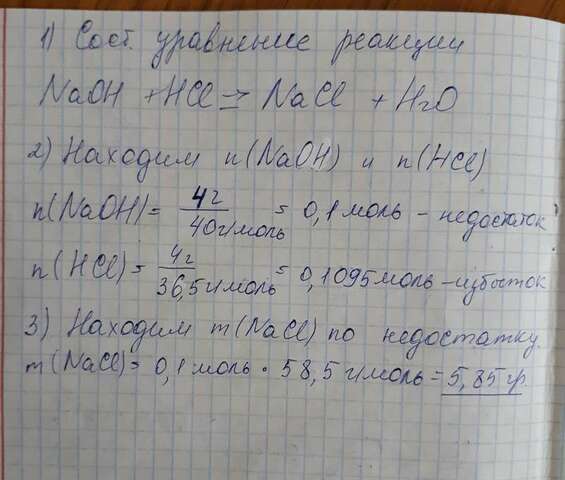 1) Сост. уравнение реакции
NaOH + HCl ⇒ NaCl + H2O
2) Находим n(NaOH) и n(HCl)
n(NaOH) = 4г / 40г/моль = 0,1 моль - недостаток
n(HCl) = 4г / 36,5г/моль = 0,1095 моль - избыток
3) Находим m(NaCl) по недостатку.
m(NaCl) = 0,1 моль · 58,5 г/моль = 5,85 гр.